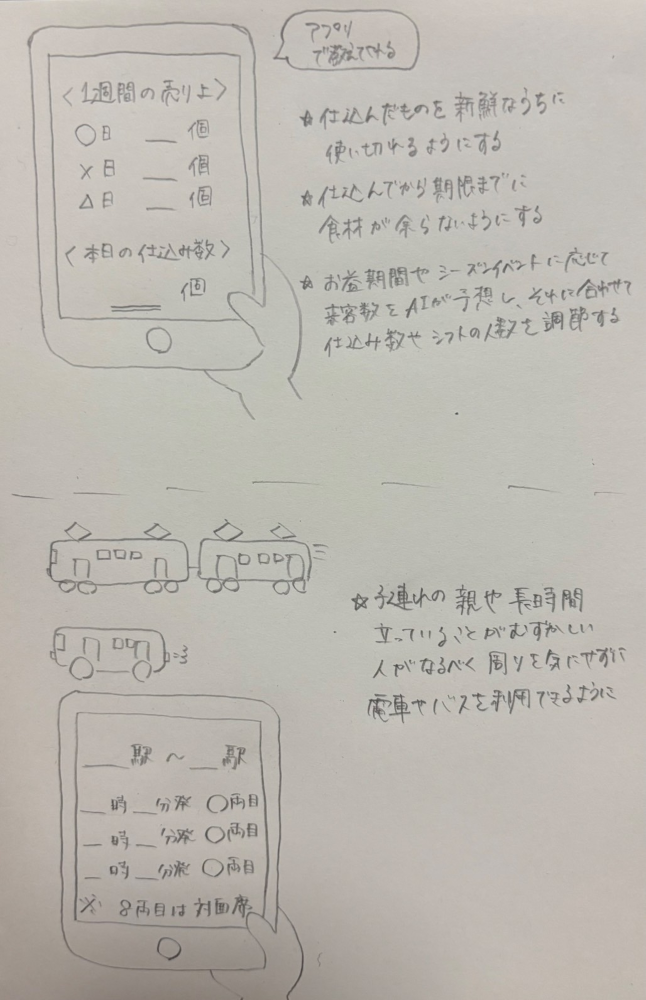 アプリ
で
<1週間の売り上>
○日 __ 個
×日 __ 個
△日 __ 個
<本日の仕込み数>
__ 個
☆ 仕込んだものを新鮮なうちに
使い切れるようにする
☆ 仕込んでから期限までに
食材が余らないようにする
☆ お盆期間やシーズンイベントに応じて
来客数をAIが予想し、それに合わせて
仕込み数やシフトの人数を調節する
☆ 子連れの親や長時間
立っていることがむずかしい
人がなるべく周りを気にせずに
電車やバスを利用できるように
__駅 ~ __駅
__時__分発 ○両目
__時__分発 ○両目
__時__分発 ○両目
※ 8両目は対面席